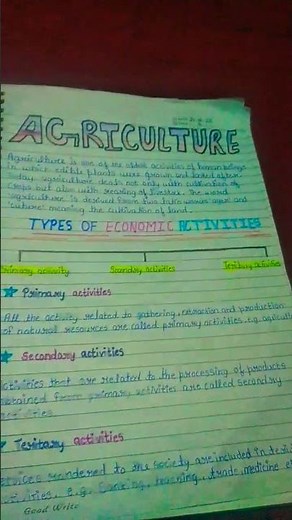 AGRICULTURE
Agriculture is one of the oldest activities of human beings
in which edible plants were grown and looked after.
today agriculture deals not only with cultivation of
crops but also with rearing of livestock. The word
agriculture is derived from two latin words 'ager' and
'culture' meaning the cultivation of land.
TYPES OF ECONOMIC ACTIVITIES
Primary activity Secondary activities Teritary activities
Primary activities
All the activity related to gathering, extraction and production
of natural resources are called primary activities. e.g. agricultu
Secondary activities
ctivities that are related to the processing of products
obtained from primary activities are called secondary
activities
Teritary activities
services rendered to the society are included in
activities. e.g. banking, teaching, trade, medicine
Good Write